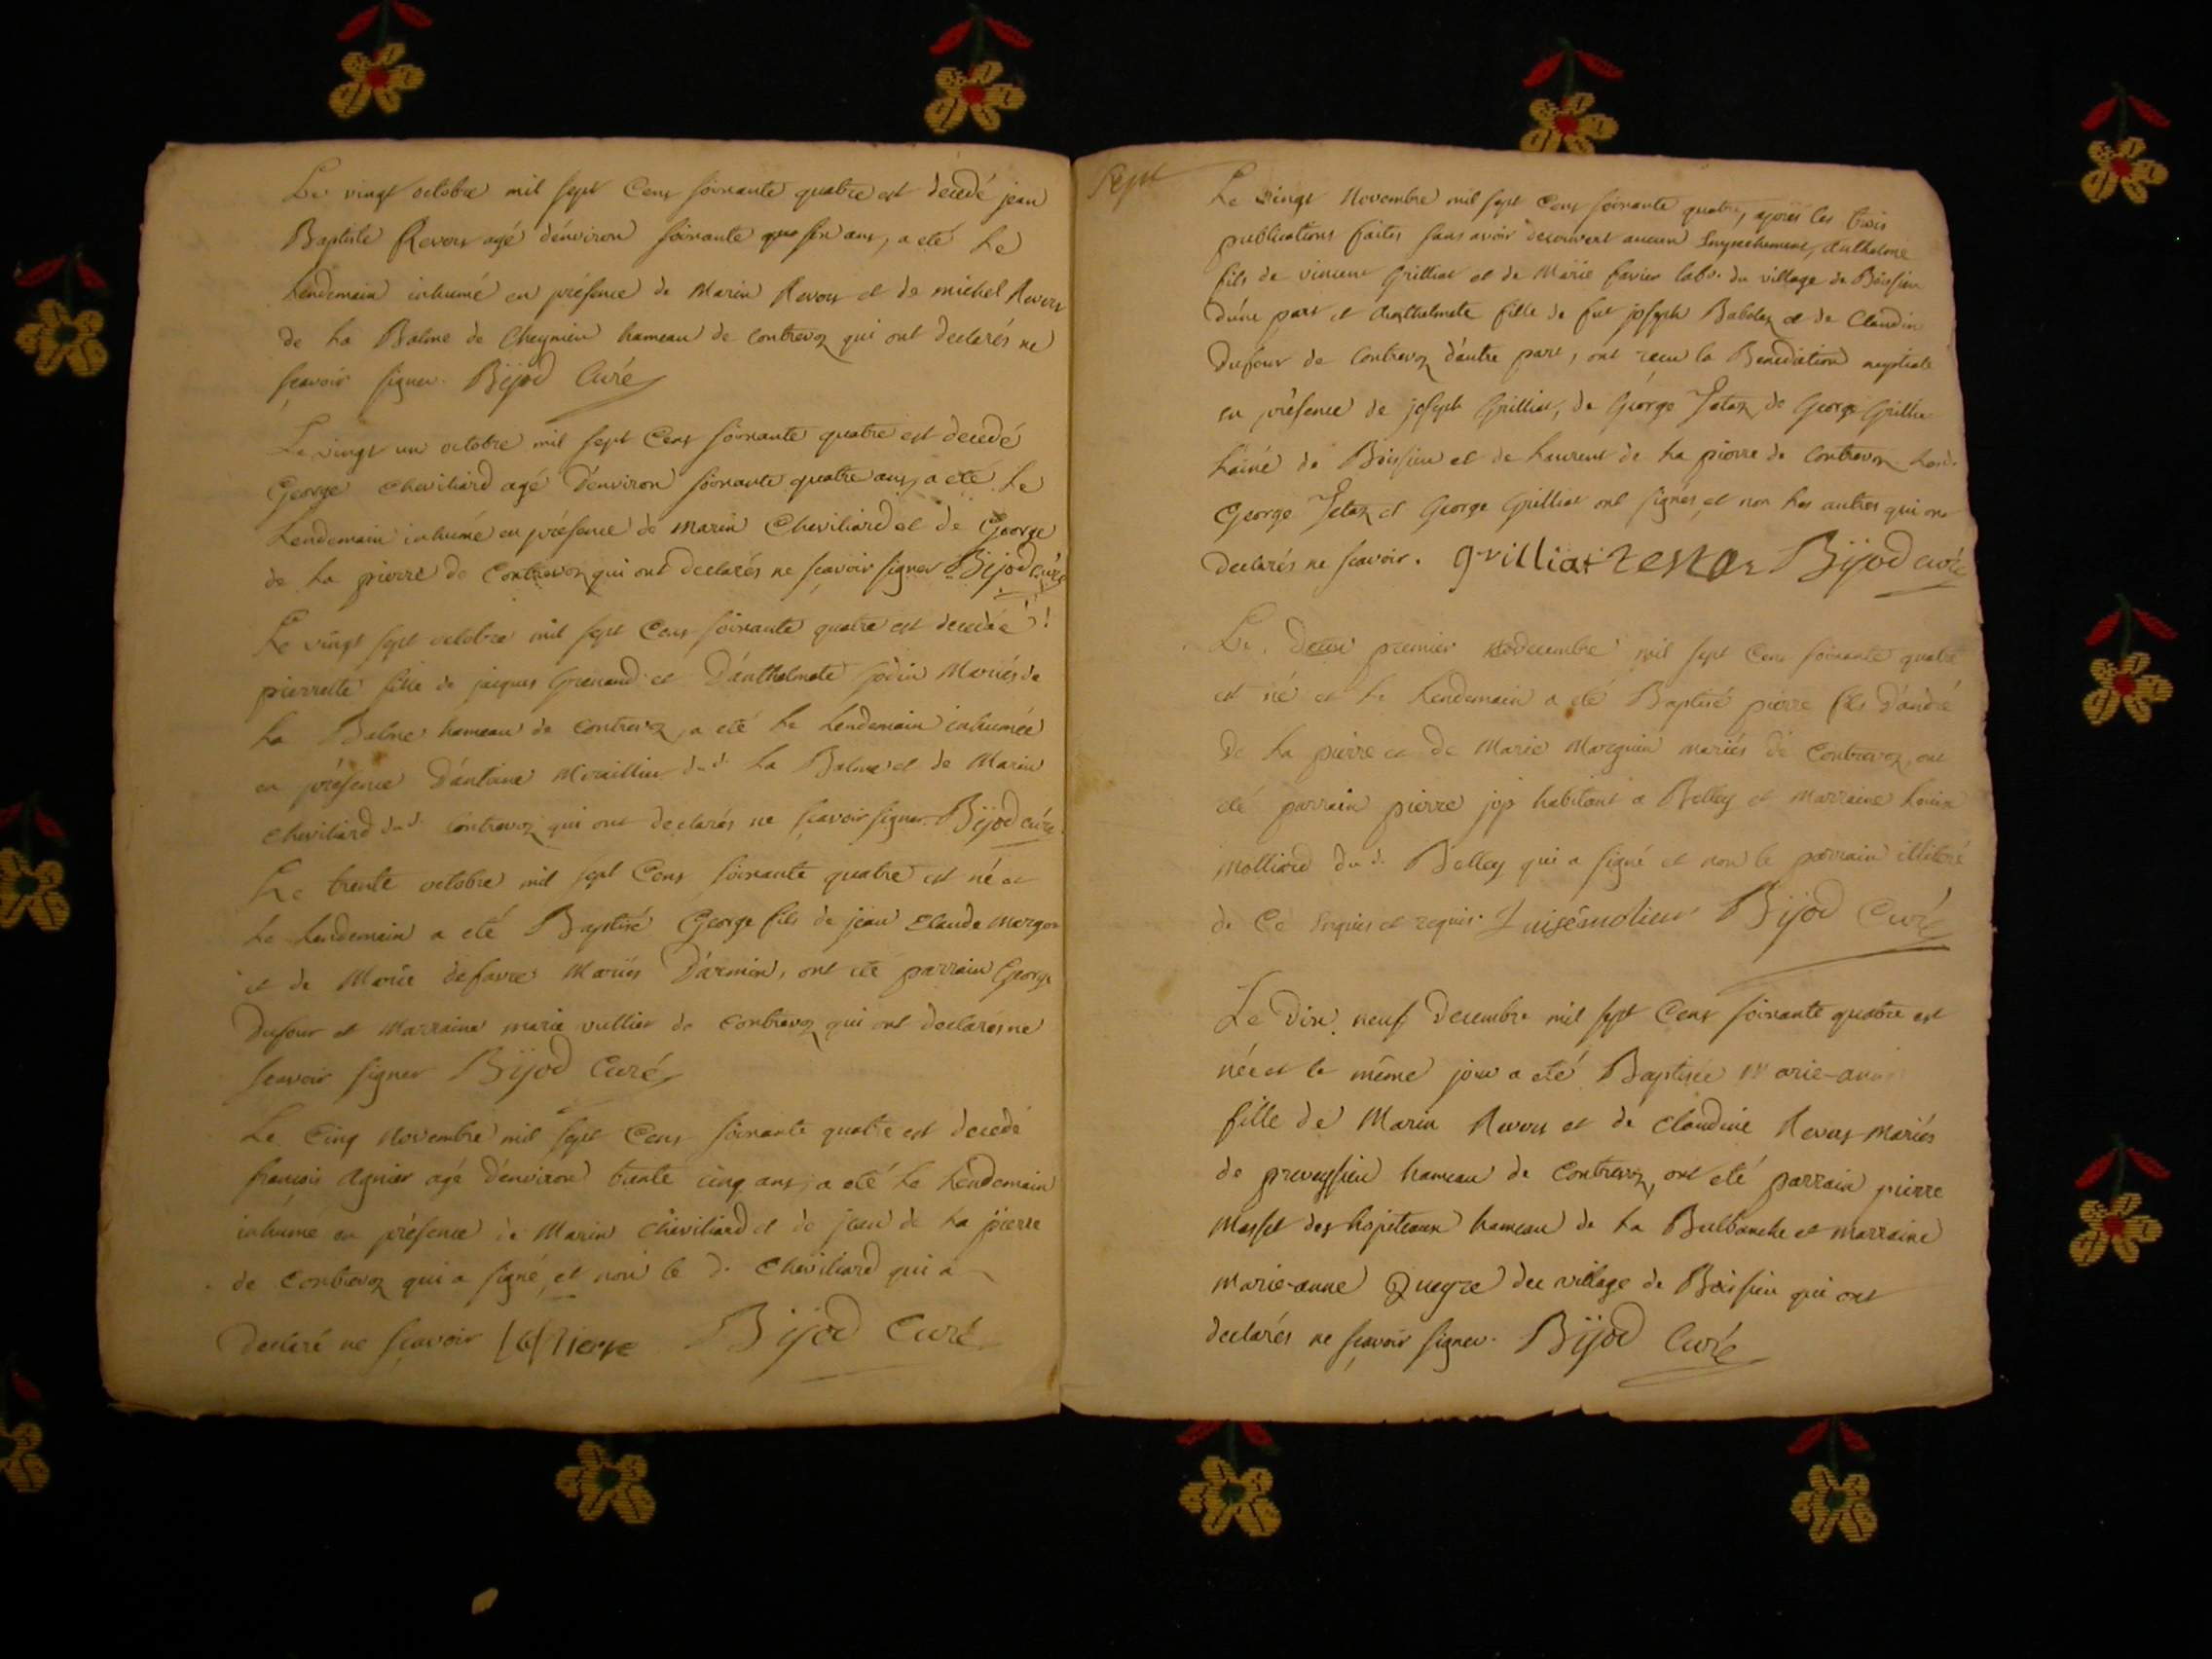 Le vingt octobre mil sept Cens soixante quatre est decedé jean
Baptiste Revoux agé d'environ soixante six ans, a eté Le
Lendemain inhumé en présence de Marin Revoux et de michel Revoux
de La Balme de Cheynieu hameau de Contrevoz qui ont declarés ne
sçavoir signer. Bijod Curé
Le vingt un octobre mil sept Cens soixante quatre est decedé
George cheviliard agé d'environ soixante quatre ans, a eté Le
Lendemain inhumé en présence de marin Cheviliard et de George
de La pierre de Contrevoz qui ont declarés ne sçavoir signer Bijod curé
Le vingt sept octobre mil sept Cens soixante quatre est decedée
pierrette fille de jacques Grenaud et D'anthelmete jodin Mariés de
La Balme hameau de Contrevoz, a eté Le Lendemain inhumée
en présence D'antoine Moraillier dud. La Balme et de Marin
cheviliard dud. Contrevoz qui ont declarés ne sçavoir signer. Bijod curé
Le trente octobre mil sept Cens soixante quatre est né et
Le Lendemain a eté Baptisé George fils de jean Claude Margon
et de Marie defavre Mariés D'armix, ont eté parrain George
Dufour et Marraine marie vullier de Contrevoz qui ont declarés ne
sçavoir signer Bijod Curé
Le Cinq Novembre mil sept Cens soixante quatre est decedé
françois Agnier agé d'environ trente cinq ans, a eté Le Lendemain
inhumé en présence de Marin Cheviliard et de jean de La pierre
de Contrevoz qui a signé, et non le d. Cheviliard qui a
declaré ne sçavoir Bijod Curé
Sept
Le vingt Novembre mil sept Cens soixante quatre, après les trois
publications faites sans avoir decouvert aucun Empechement, Anthelme
fils de vincent Grilliat et de Marie favier labr. du village de Boissieu
d'une part et Anthelmete fille de fut joseph Babolaz et de Claudine
Dufour de Contrevoz d'autre part, ont reçu la Benediction nuptiale
en présence de joseph Grilliat, de George Jetaz de George Grilliat
Lainé de Boissieu et de Laurent de La pierre de Contrevoz Lesd.
George Jetaz et George Grilliat ont signés, et non Les autres qui ont
declarés ne sçavoir. grilliat Bijod curé
Le premier decembre mil sept Cens soixante quatre
est né et Le Lendemain a eté Baptisé pierre fils D'andré
De La pierre et de Marie Marguin mariés de Contrevoz, ont
eté parrain pierre jop habitant a Belley et Marraine Louise
molliard dud. Belley qui a signé et non le parrain illiteré
de Ce Enquis et requis. Bijod Curé
Le Dix neuf Decembre mil sept Cens soixante quatre est
née et le même jour a eté Baptisée Marie-anne
fille de Marin Revoux et de Claudine Revoux Mariés
de preveyssieu hameau de Contrevoz, ont eté parrain pierre
Masset des hopiteaux hameau de La Bulbanche et marraine
Marie-anne Queyre du village de Boissieu qui ont
declarés ne sçavoir signer. Bijod Curé